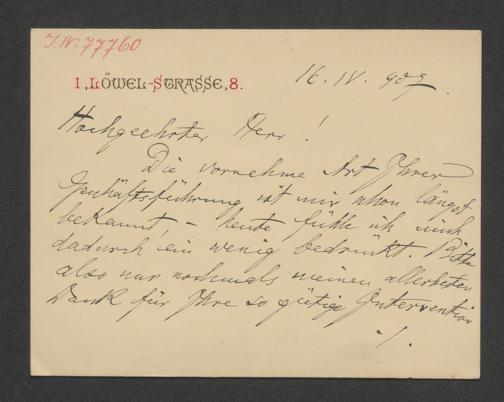 J.N. 77760
I., LÖWEL-STRASSE, 8.
16. IV. 907
Hochgeehrter Herr!
Die vornehme Art Ihrer
Geschäftsführung ist mir schon längst
bekannt, – heute fühle ich mich
dadurch ein wenig bedrückt. Bitte
also nur nochmals meinen allerbesten
Dank für Ihre so gütige Intervention
./.